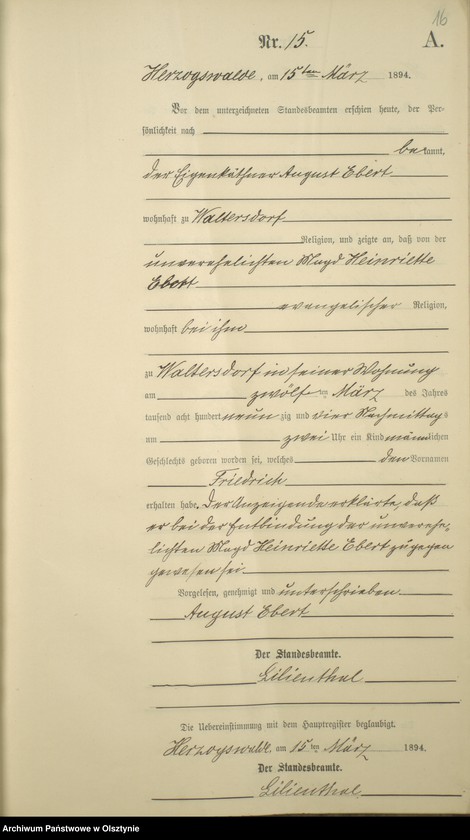 16
Nr. 15.
A.
Herzogswalde, am 15ten März 1894.
Vor dem unterzeichneten Standesbeamten erschien heute, der Per-
sönlichkeit nach
bekannt,
der Eigenkäthner August Ebert
wohnhaft zu Waltersdorf
Religion, und zeigte an, daß von der
unverehelichten Magd Heinriette
Ebert
evangelischer Religion,
wohnhaft bei ihm
zu Waltersdorf in seiner Wohnung
am zwölften März des Jahres
tausend acht hundert neunzig und vier Nachmittags
um zwei Uhr ein Kind männlichen
Geschlechts geboren worden sei, welches den Vornamen
Friedrich
erhalten habe. Der Anzeigende erklärte, daß
er bei der Entbindung der unverehe-
lichten Magd Heinriette Ebert zugegen
gewesen sei
Vorgelesen, genehmigt und unterschrieben
August Ebert
Der Standesbeamte.
Lilienthal
Die Uebereinstimmung mit dem Hauptregister beglaubigt.
Herzogswalde, am 15ten März 1894.
Der Standesbeamte.
Lilienthal
Archiwum Państwowe w Olsztynie